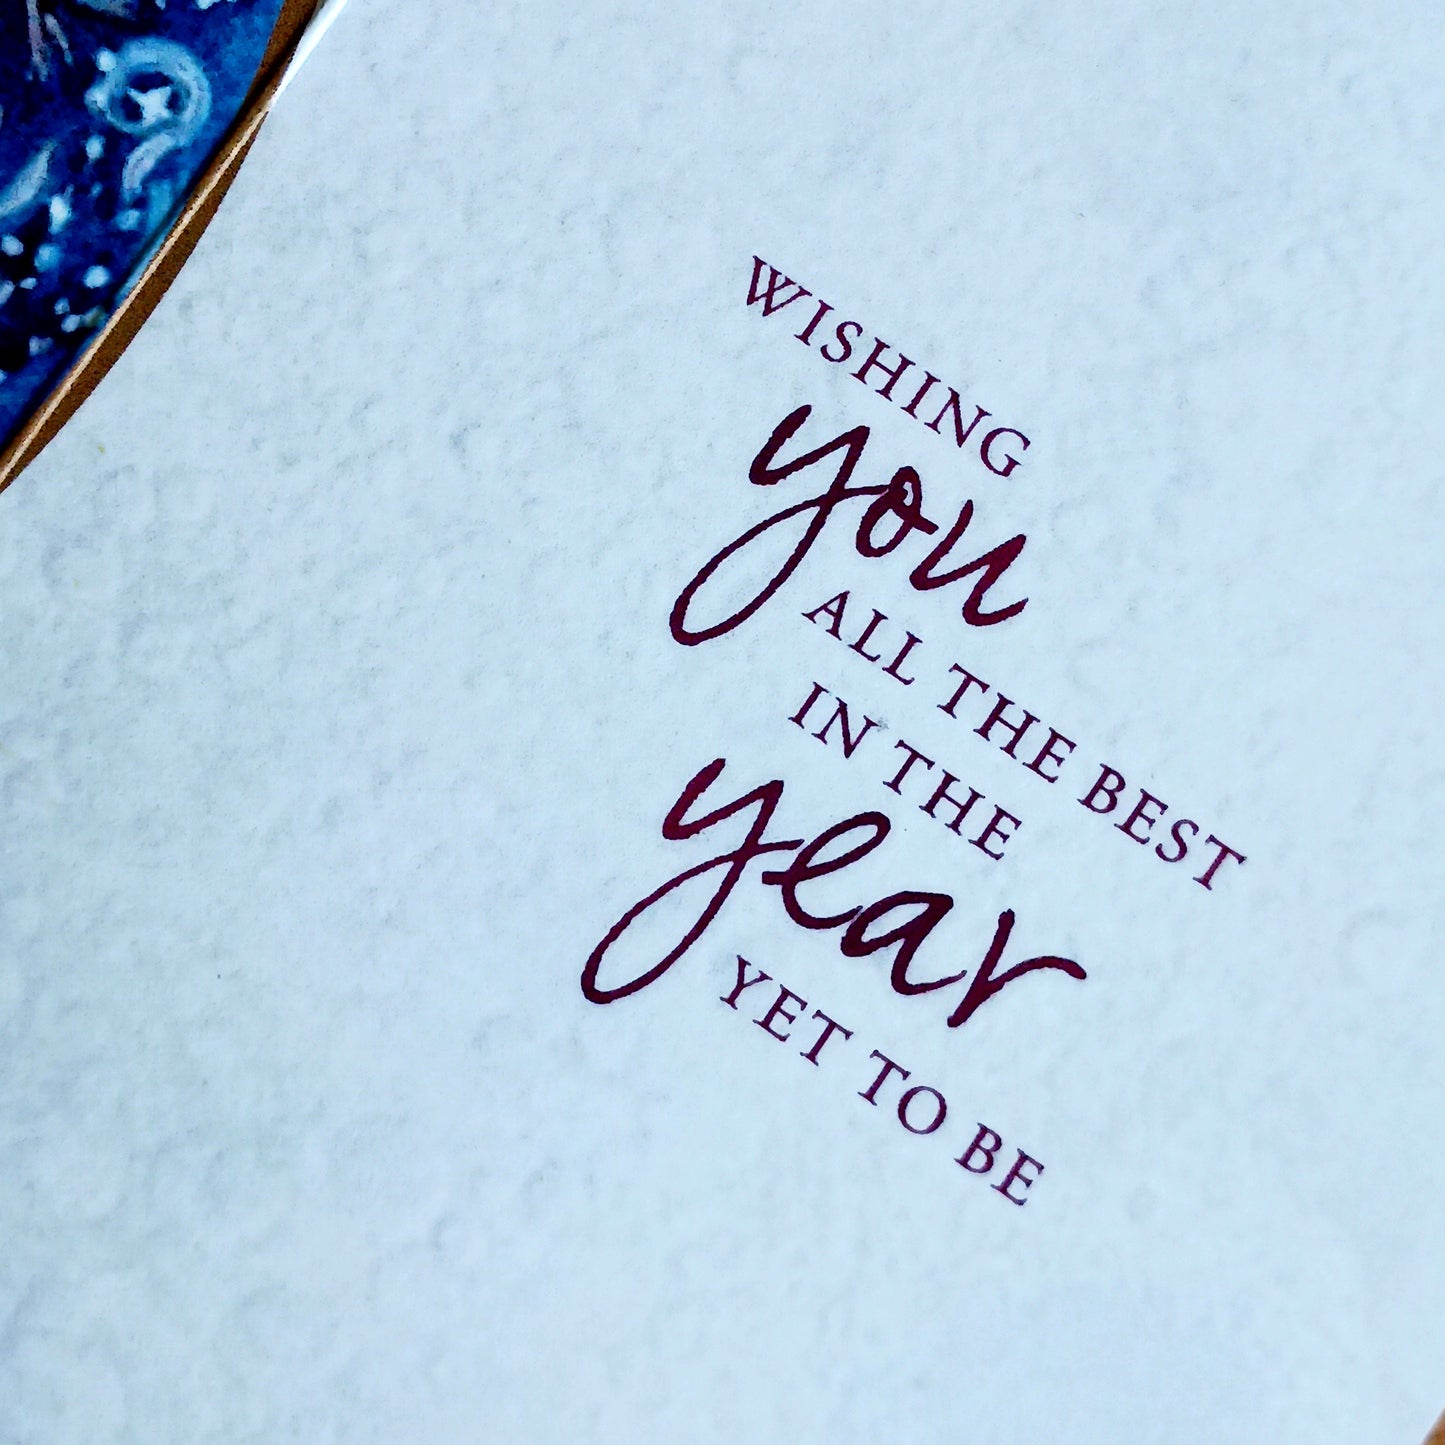 WISHING
you
ALL THE BEST
IN THE
year
YET TO BE